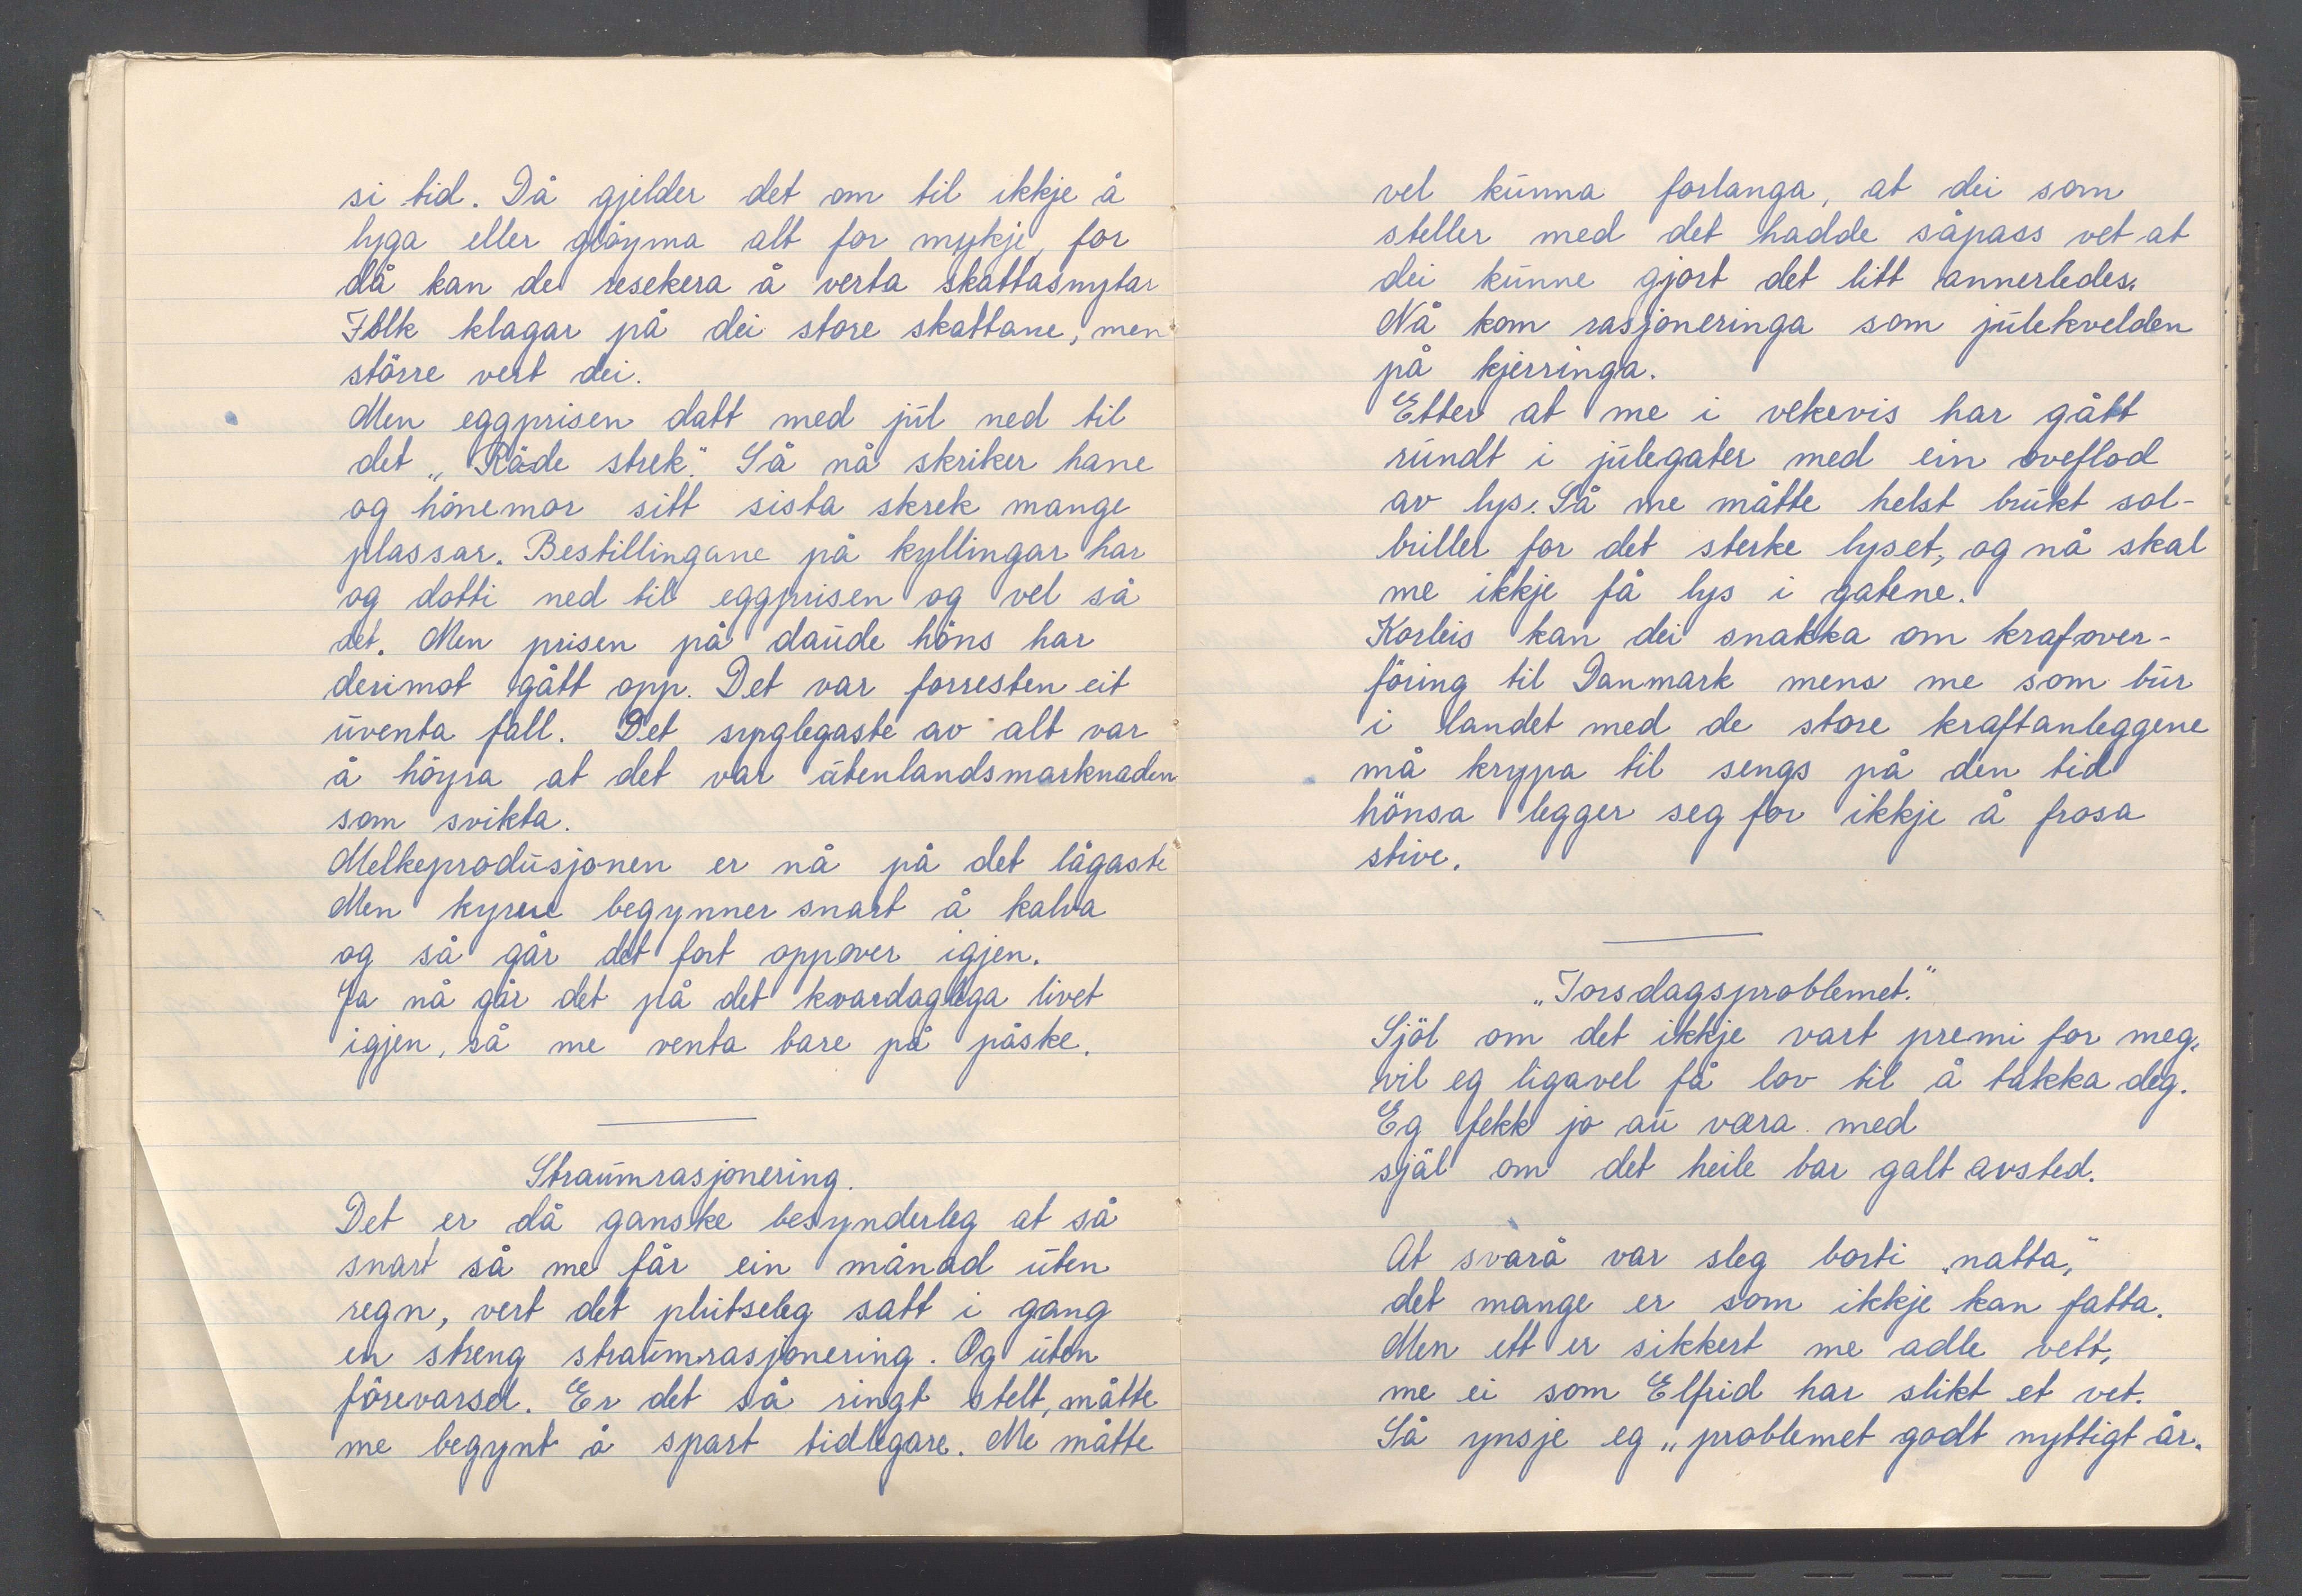 si tid. Då gjelder det om til ikkje å
lyga eller glöyma alt for mykje, for
då kan de resekera å verta skattasnytar
Folk klagar på dei store skattane, men
större vert dei.
Men eggprisen datt med jul ned til
det „Röde strek". Så nå skriker hane
og hönemor sitt sista skrek mange
plassar. Bestillingane på kyllingar har
og dotti ned til eggprisen og vel så
det. Men prisen på daude höns har
derimot gått opp. Det var forresten eit
uventa fall. Det syrglegaste av alt var
å höyra at det var utenlandsmarknaden
som svikta.
Melkeprodusjonen er nå på det lågaste
Men kyrne begynner snart å kalva
og så går det fort oppover igjen.
Ja nå går det på det kvardaglega livet
igjen, så me venta bare på påske.
Straumrasjonering.
Det er då ganske besynderleg at så
snart så me får ein månad uten
regn, vert det plutseleg satt i gang
en streng straumrasjonering. Og uten
förevarsel. Er det så ringt stelt, måtte
me begynt å spart tidlegare. Me måtte
vel kunna forlanga, at dei som
steller med det hadde såpass vet at
dei kunne gjort det litt annerledes.
Nå kom rasjoneringa som julekvelden
på kjerringa.
Etter at me i vekevis har gått
rundt i julegater med ein oveflod
av lys. Så me måtte helst brukt sol-
briller for det sterke lyset, og nå skal
me ikkje få lys i gatene.
Korleis kan dei snakka om krafover-
föring til Danmark mens me som bur
i landet med de store kraftanleggene
må krypa til sengs på den tid
hönsa legger seg for ikkje å frosa
stive.
„Torsdagsproblemet."
Sjöl om det ikkje vart premi for meg,
vil eg ligavel få lov til å takka deg.
Eg fekk jo au vera med
sjöl om det heile bar galt avsted.
At svarå var sleg borti „natta,"
det mange er som ikkje kan fatta.
Men ett er sikkert me adle vett,
me ei som Elfrid har slikt et vet.
Så ynsje eg „problemet godt nyttigt år.